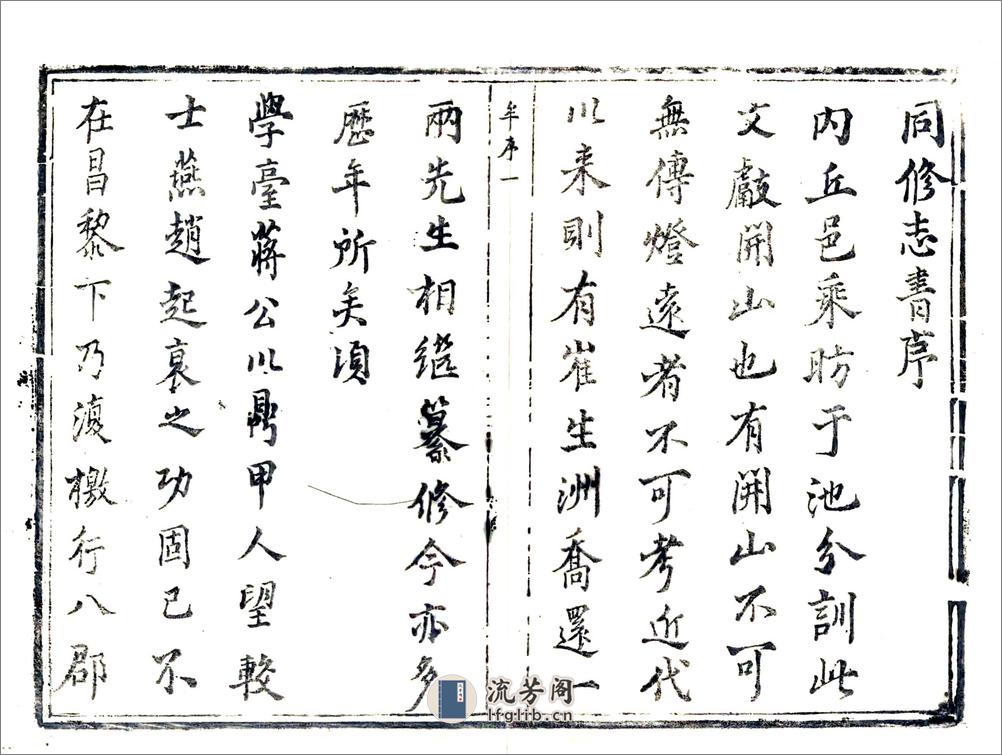 同修志書序
內丘邑乘昉于池分訓此
文獻開山也有開山不可
無傳燈遠者不可考近代
以来則有崔生洲喬還一
牟序一
兩先生相繼纂修今亦多
歷年所矣須
學臺蔣公以鼎甲人望較
士燕趙起衰之功固已不
在昌黎下乃復檄行八郡
流芳阁
lfglib.cn